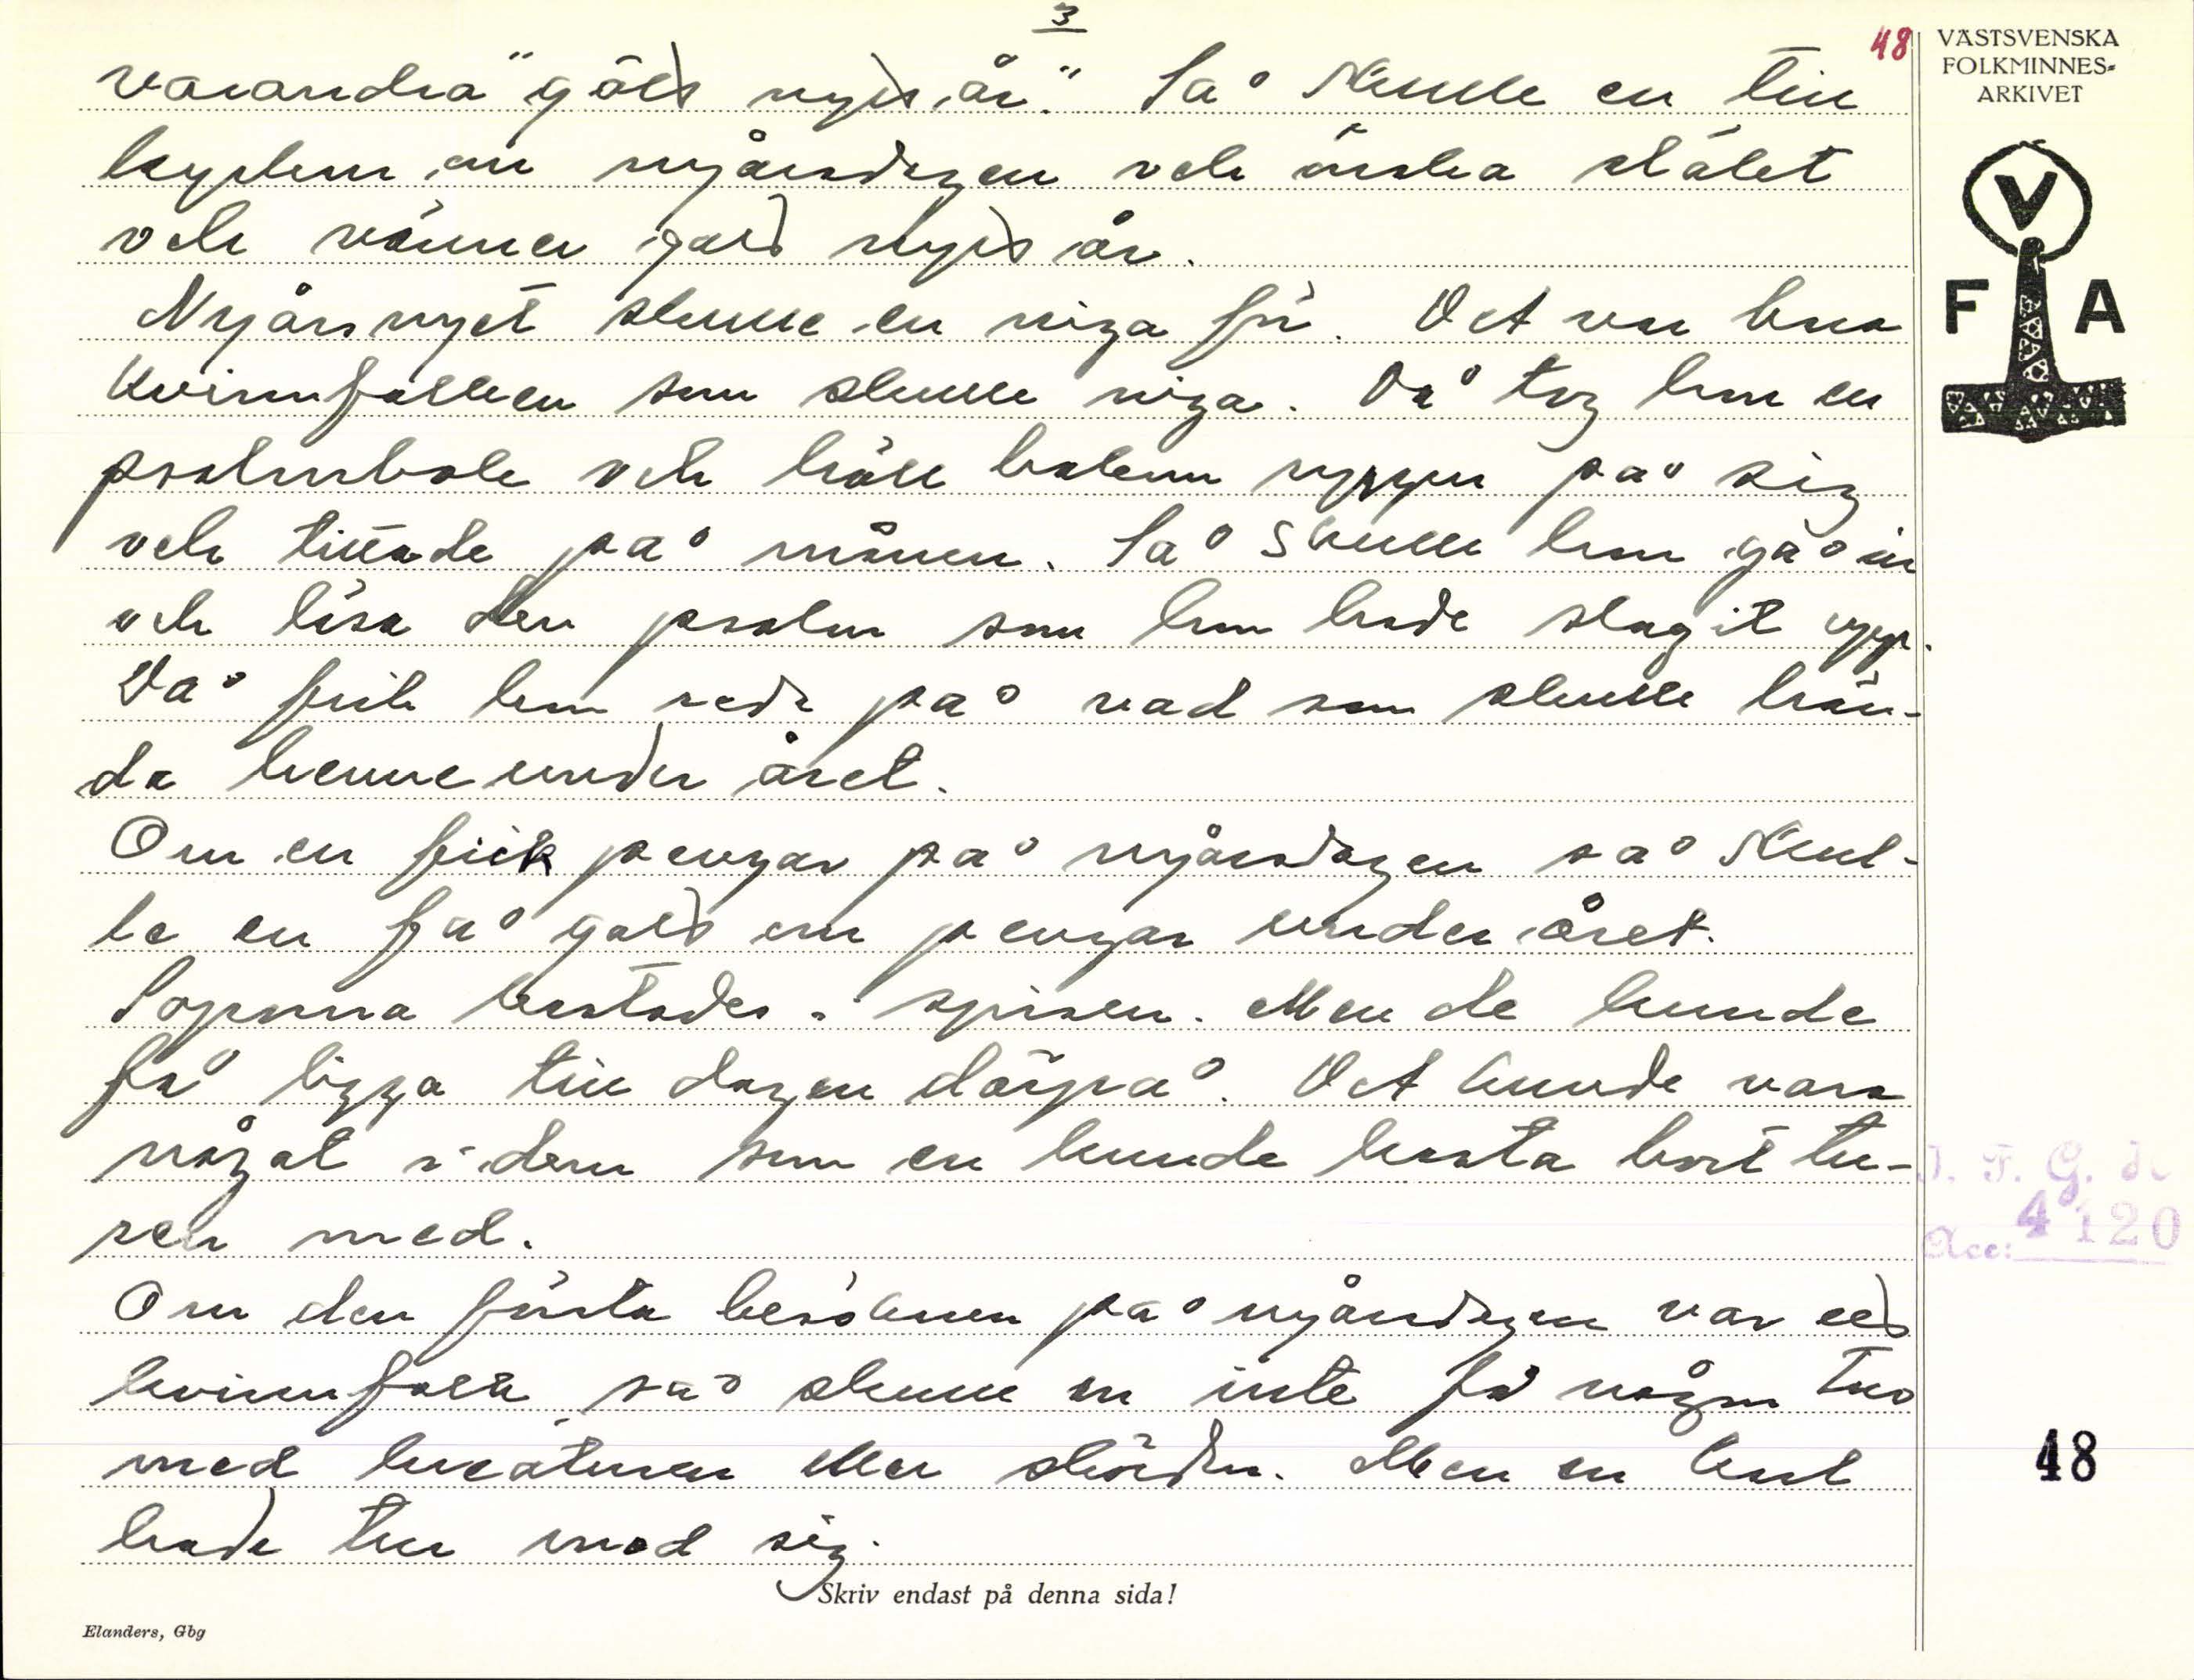 3
48
varandra "gått nytt år." Så skulle en till
kyrkan om nyårsdagen och önska släkt
och vänner gott nytt år.
Nyårsnyet skulle en niga för. Det var bara
kvinnfolken som skulle niga. Då tog hon en
psalmbok och höll boken upppå sig
och tittade på månen. Så skulle hon gå in
och läsa den psalm som hon hade slagit upp.
Då fick hon reda på vad som skulle hän-
da henne under året.
Om en fick pengar på nyårsdagen så skul-
le en få gott om pengar under året.
Soporna kastades i spisen. Men de kunde
få ligga till dagen därpå. Det kunde vara
något i dem som en kunde kasta bort tu-
ren med.
Om den första besökaren på nyårsdagen var ett
kvinnfolk så skulle en inte få någon tur
med kreaturen eller skörden. Men en karl
hade tur med sig.
Skriv endast på denna sida!
Elanders, Gbg
VÄSTSVENSKA
FOLKMINNES-
ARKIVET
V
F A
I. F. G. d
Acc: 4120
48